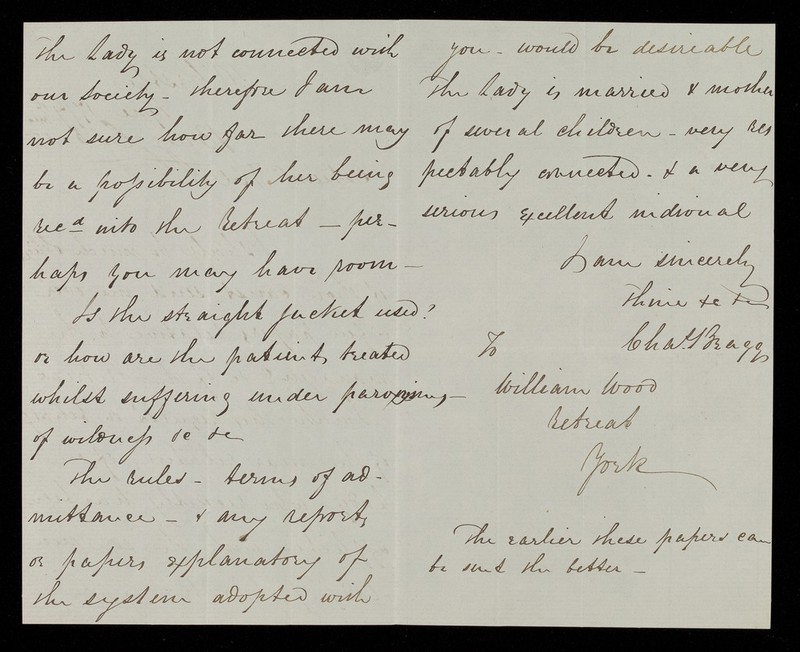 The Lady is not connected with
our Society - therefore I am
not sure how far there may
be a possibility of her being
recd into the Retreat - per-
haps you may have room -
Is the straight jacket used?
or how are the patients treated
whilst suffering under paroxisms -
of wildness &c &c
The rules - terms of ad-
mittance - & any reports
or papers explanatory of
the system adopted with
you - would be desireable
The Lady is married & mother
of several children - very res
pectably connected - & a very
serious excellent indivual
I am sincerely
thine &c &c
Chas. Bragg
To
William Wood
Retreat
York
The earlier these papers can
be sent the better -